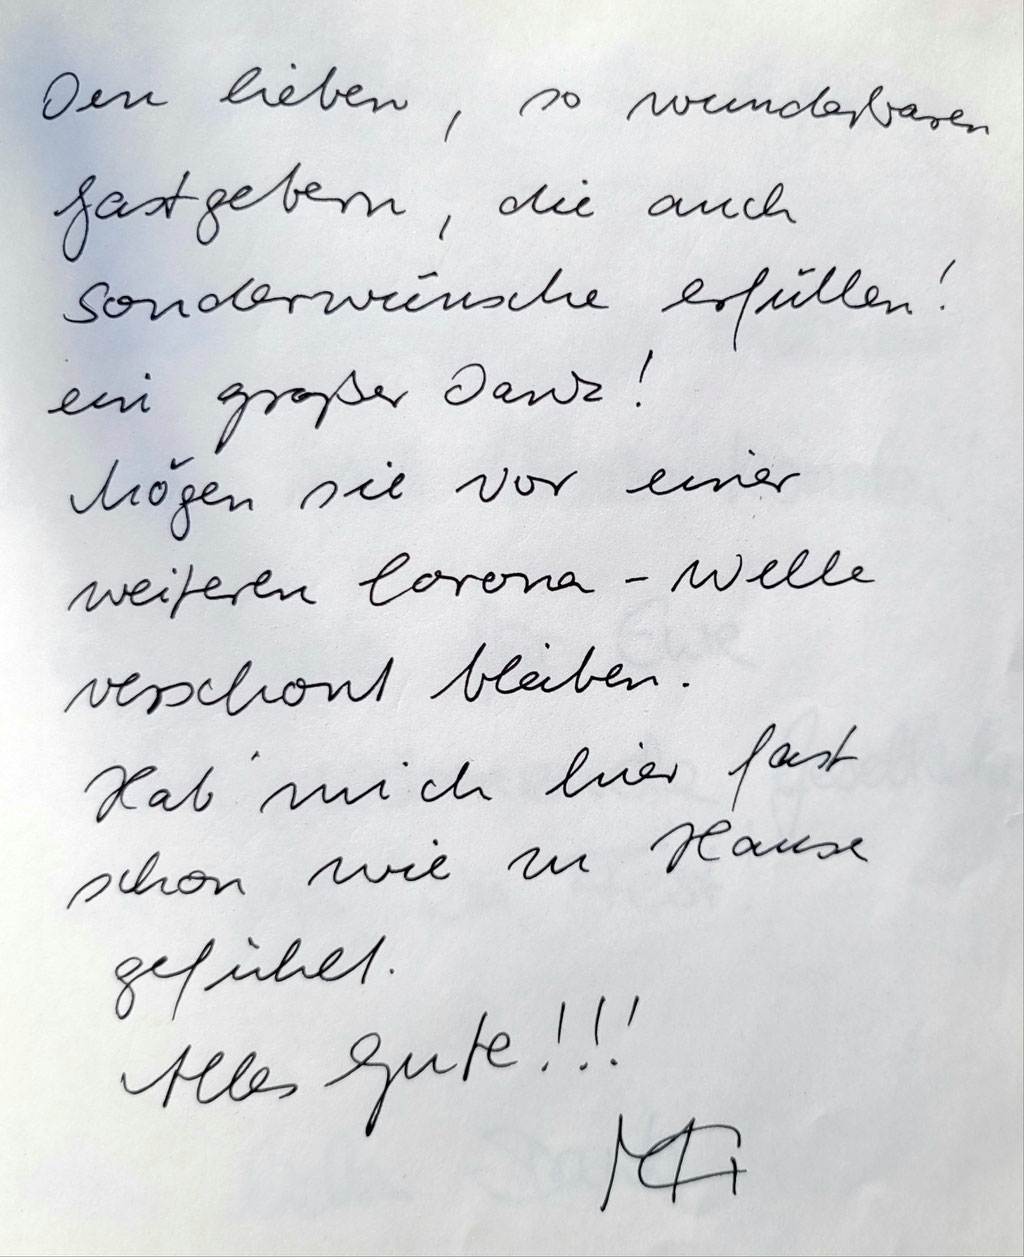 Den lieben, so wunderbaren
Gastgebern, die auch
Sonderwünsche erfüllen!
ein großer Dank!
Mögen sie vor einer
weiteren Corona-Welle
verschont bleiben.
Hab' mich hier fast
schon wie zu Hause
gefühlt.
Alles Gute!!!